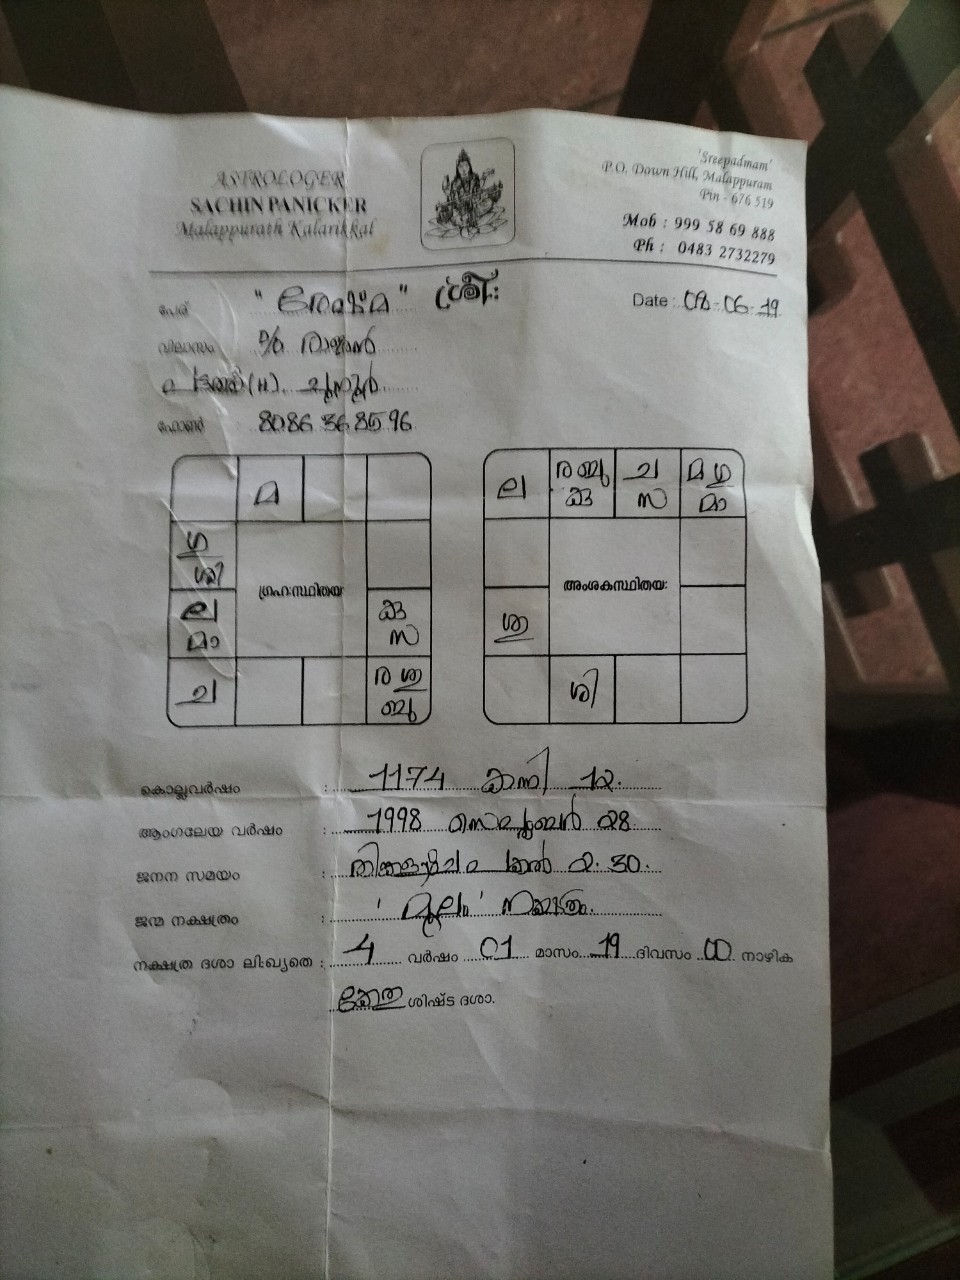 ASTROLOGER
SACHIN PANICKER
Malappurath Kalarikkal
'Sreepadmam'
P.O. Down Hill, Malappuram
Pin - 676 519
Mob : 999 58 69 888
Ph : 0483 2732279
ശ്രീ:
പേര്
Date : 08-06-19
വിലാസം D/o രാജൻ
(H).
ഫോൺ 8086 36 85 96
മ
ഗു
ശി
ല
മാ
ച
കു
സ
ര ശു
ബു
ഗ്രഹ:സ്ഥിതയ:
ല
ര ബു
കു
ച
സ
മ ഗു
മാ
ശു
ശി
അംശകസ്ഥിതയ:
കൊല്ലവർഷം : 1174 കന്നി 12.
ആംഗലേയ വർഷം : 1998 സെപ്റ്റംബർ 28
ജനന സമയം : തിങ്കളാഴ്ച പകൽ 2.30.
ജന്മ നക്ഷത്രം : 'മൂലം' നക്ഷത്രം.
നക്ഷത്ര ദശാ ലി:ഖ്യതെ : 4 വർഷം 01 മാസം 19 ദിവസം 00 നാഴിക
കേതു ശിഷ്ട ദശാ.